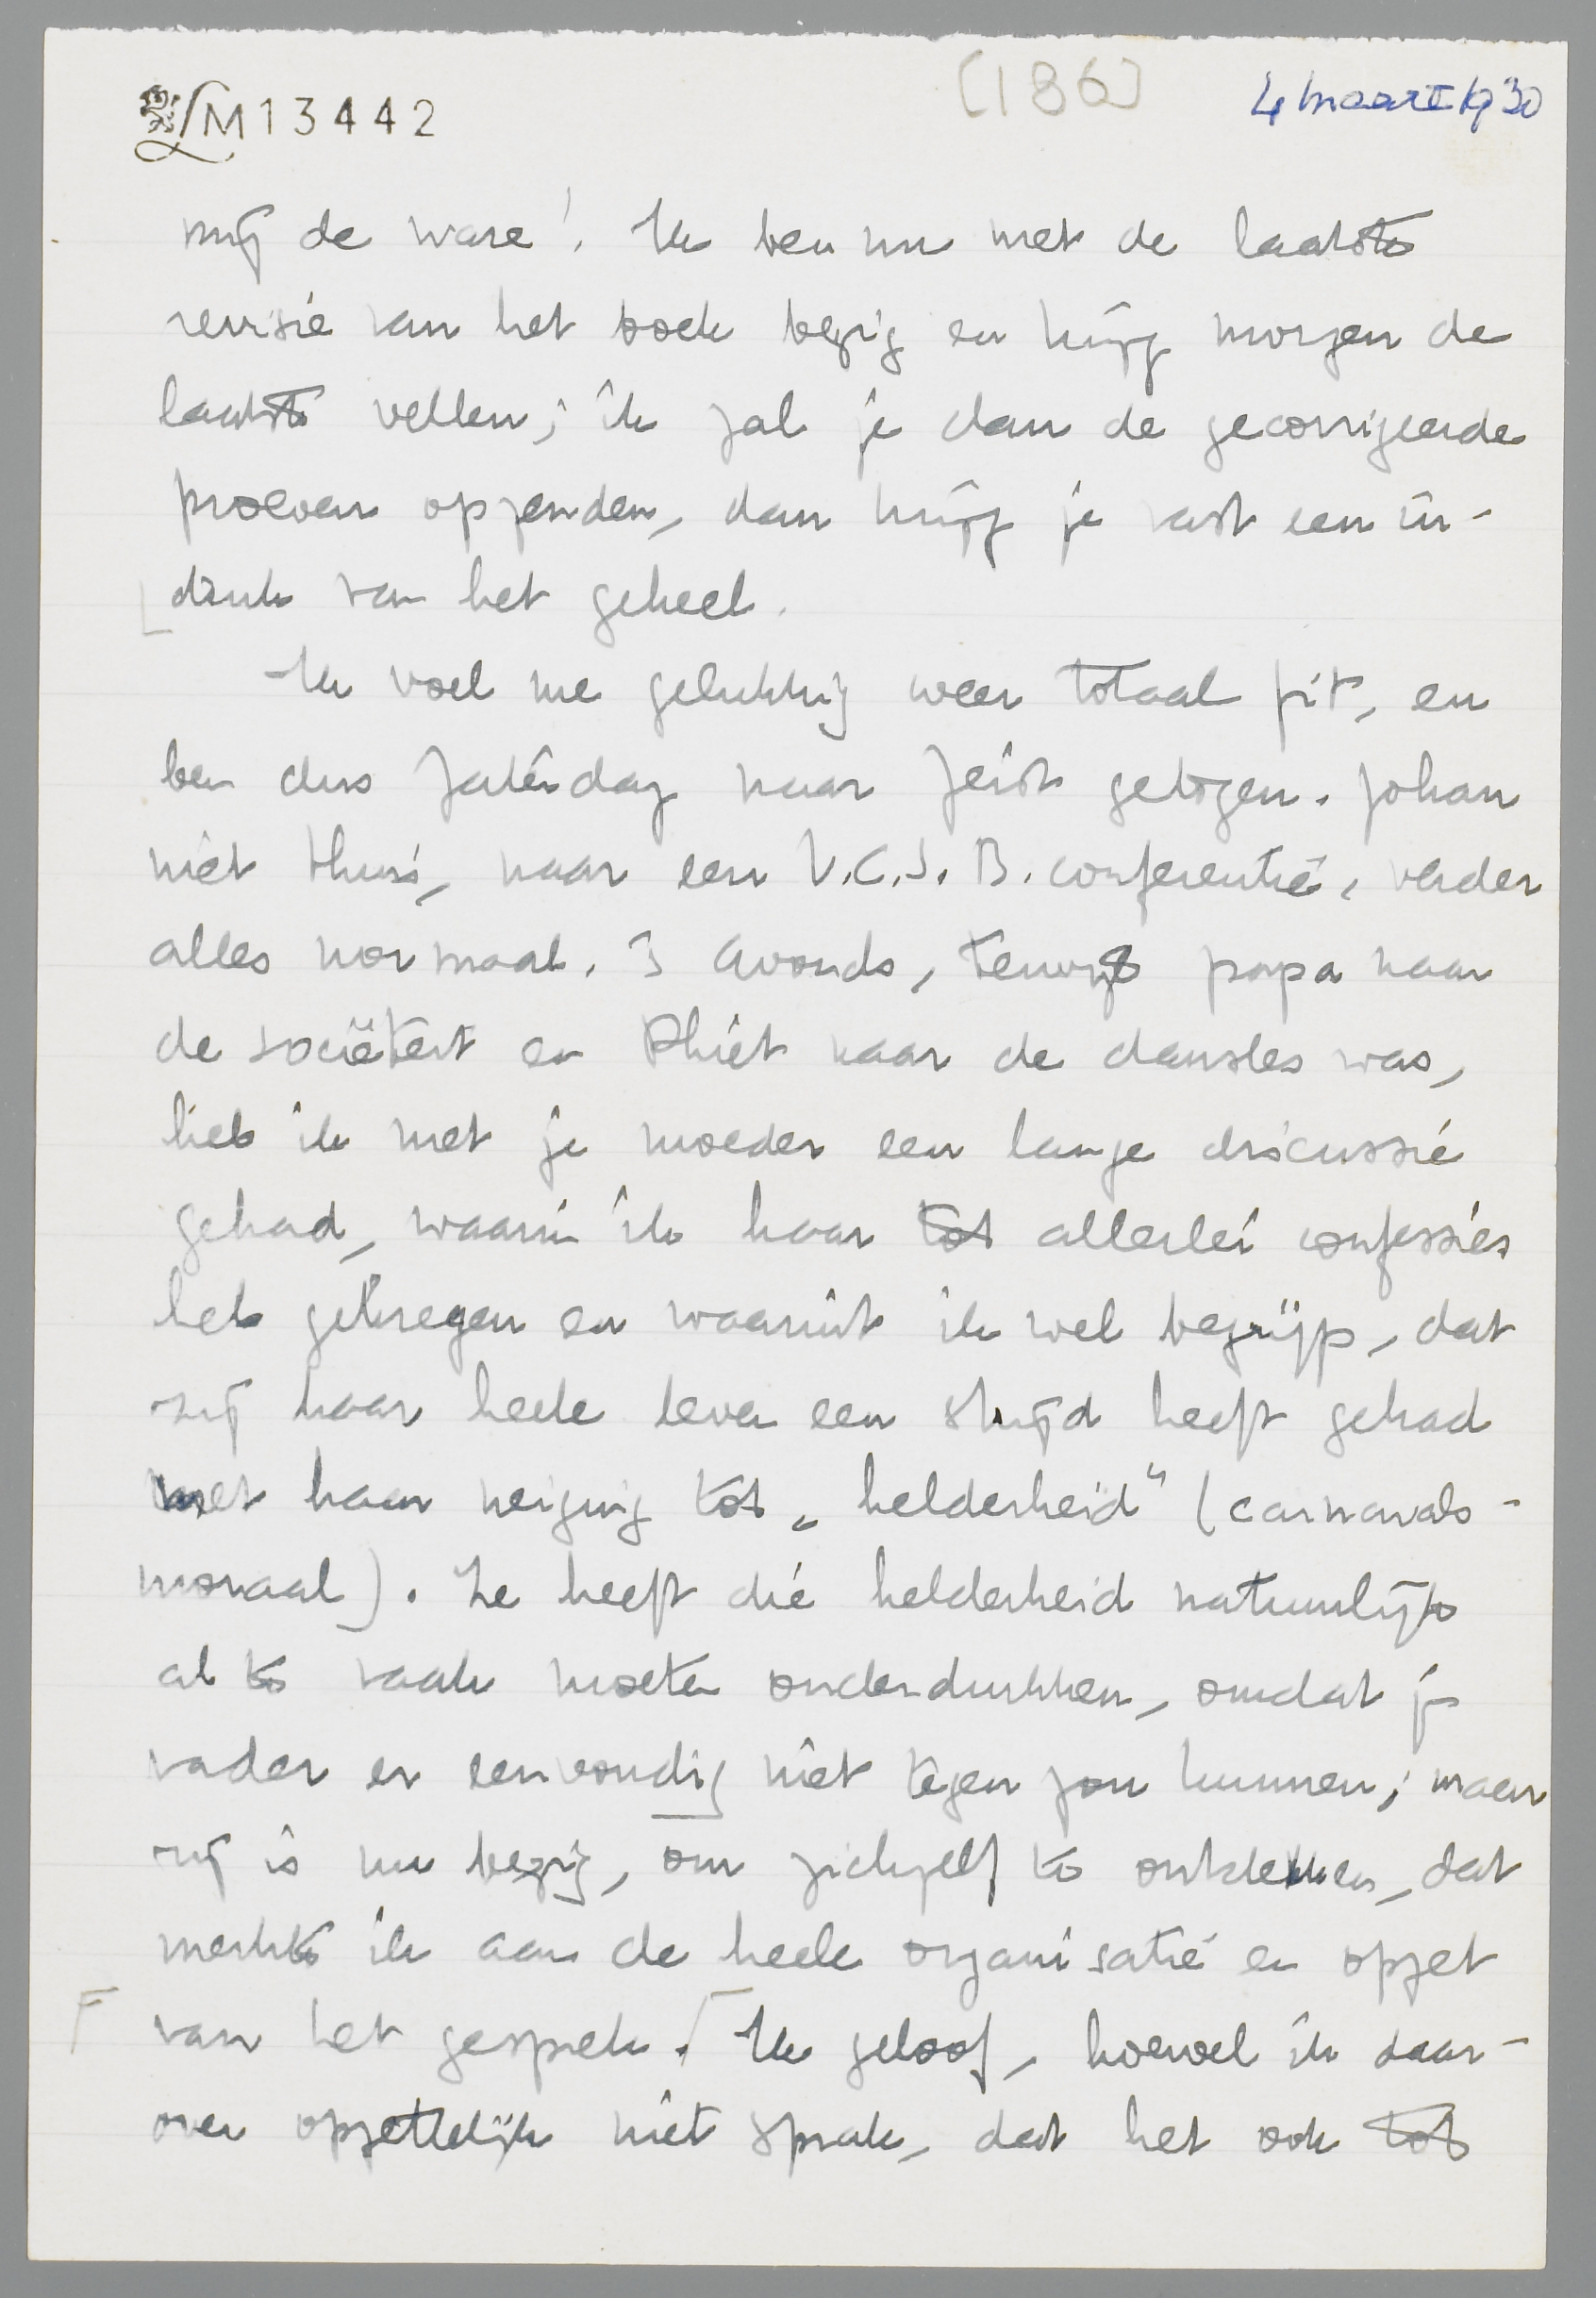 LM13442
[186]
4 maart 1930
mij de ware! Ik ben nu met de laatste
revisie van het boek bezig en krijg morgen de
laatste vellen; ik zal je dan de gecorrigeerde
proeven opzenden, dan krijg je vast een in-
druk van het geheel.
Ik voel me gelukkig weer totaal fit, en
ben dus Zaterdag naar Zeist getogen. Johan
niet thuis, naar een V.C.S.B. conferentie, verder
alles normaal. 's Avonds, terwijl papa naar
de sociëteit en Phiet naar de dansles was,
heb ik met je moeder een lange discussie
gehad, waarin ik haar tot allerlei confessies
heb gekregen en waaruit ik wel begrijp, dat
zij haar heele leven een strijd heeft gehad
met haar neiging tot „helderheid" (carnavals-
moraal). Ze heeft die helderheid natuurlijk
al te vaak moeten onderdrukken, omdat je
vader er eenvoudig niet tegen zou kunnen; maar
zij is nu bezig, om zichzelf te ontdekken, dat
merkte ik aan de heele organisatie en opzet
van het gesprek. Ik geloof, hoewel ik daar-
over opzettelijk niet sprak, dat het ook tot